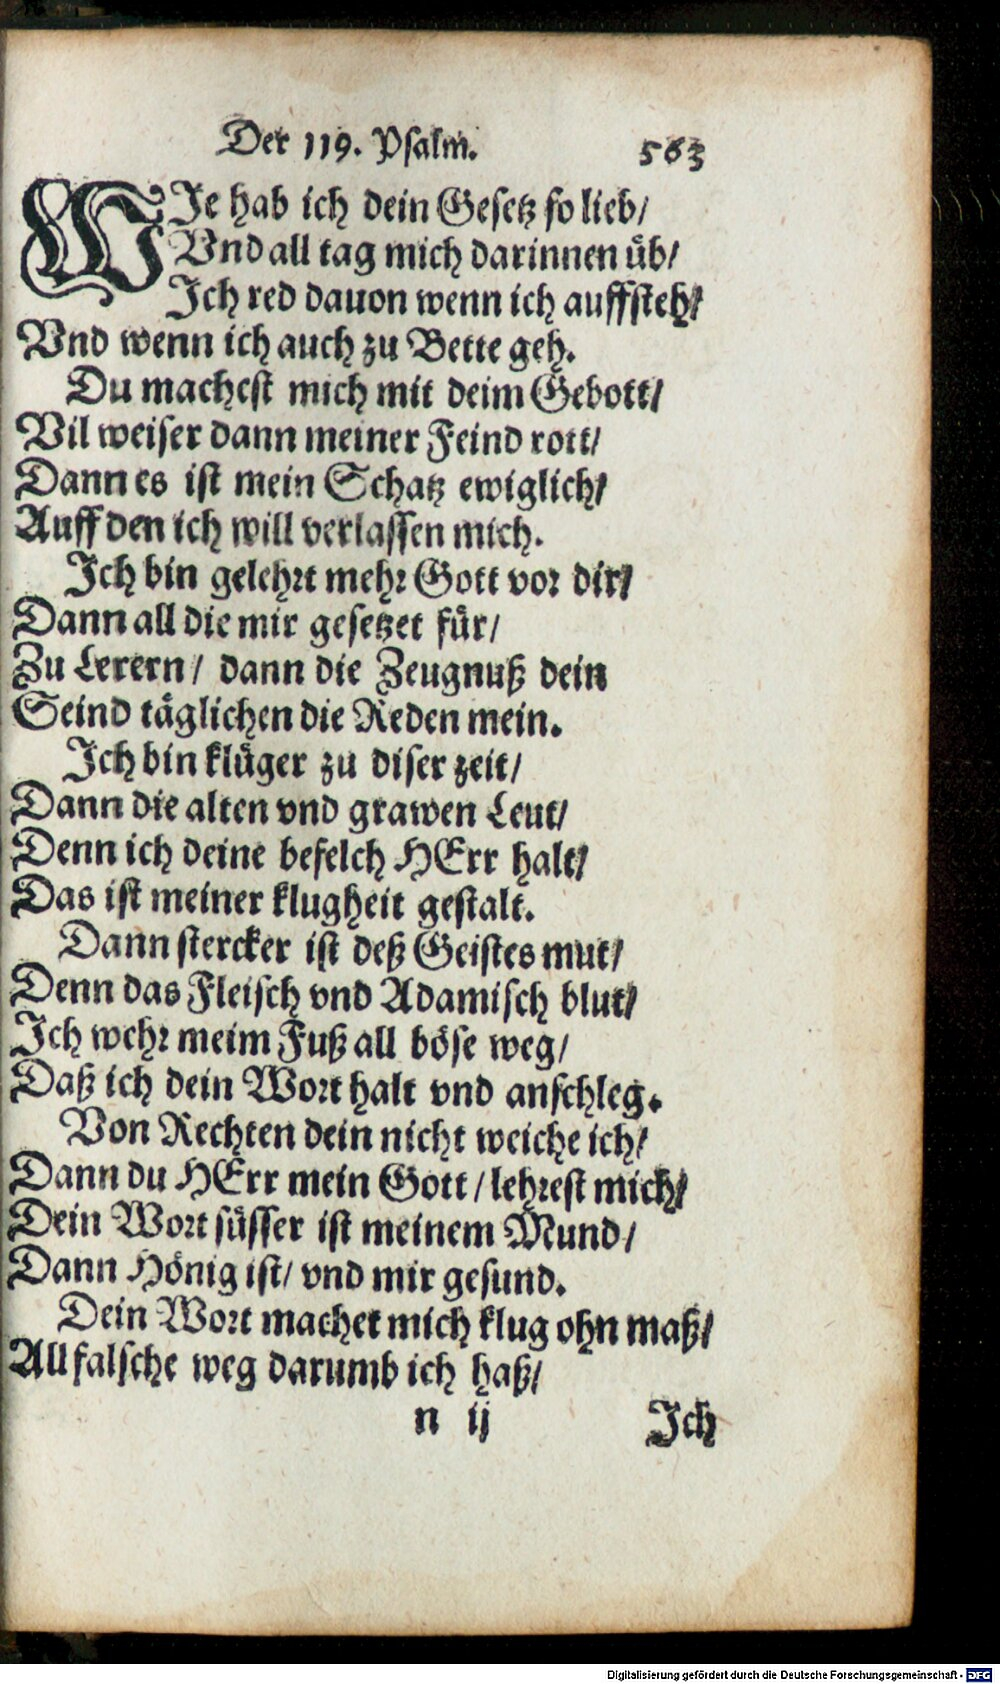 Der 119. Psalm. 563
WIe hab ich dein Gesetz so lieb/
Vnd all tag mich darinnen üb/
Ich red dauon wenn ich auffsteh/
Vnd wenn ich auch zu Bette geh.
Du machest mich mit deim Gebott/
Vil weiser dann meiner Feind rott/
Dann es ist mein Schatz ewiglich/
Auff den ich will verlassen mich.
Ich bin gelehrt mehr Gott vor dir/
Dann all die mir gesetzet für/
Zu Lerern/ dann die Zeugnuß dein
Seind täglichen die Reden mein.
Ich bin klüger zu diser zeit/
Dann die alten vnd grawen Leut/
Denn ich deine befelch HErr halt/
Das ist meiner klugheit gestalt.
Dann stercker ist deß Geistes mut/
Denn das Fleisch vnd Adamisch blut/
Ich wehr meim Fuß all böse weg/
Daß ich dein Wort halt vnd anschleg.
Von Rechten dein nicht weiche ich/
Dann du HErr mein Gott/ lehrest mich/
Dein Wort süsser ist meinem Mund/
Dann Hönig ist/ vnd mir gesund.
Dein Wort machet mich klug ohn maß/
All falsche weg darumb ich haß/
n ij Ich
Digitalisierung gefördert durch die Deutsche Forschungsgemeinschaft - DFG